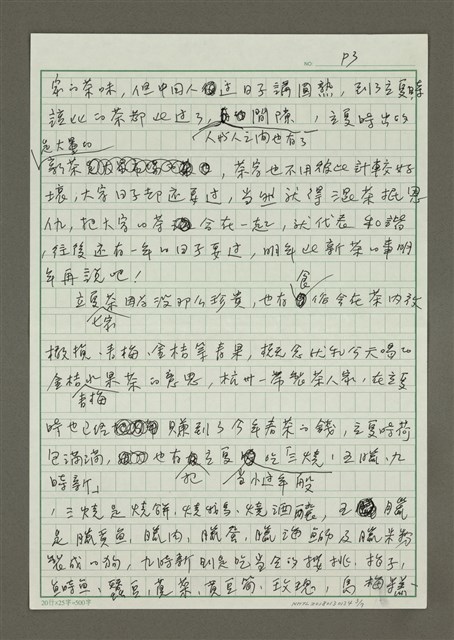 NO. P3
家的茶味，但中国人過日子講圓熟，到了立夏時
該比的茶都比過了，人與人之間也有了間隙，立夏時出的
是大量的
新茶，茶客也不用彼此計較好
壞，大家日子却还要过，当然就得混茶抿恩
仇，把大家的茶合在一起，就代表和諧
，往後还有一年的日子要过，明年比新茶的事明
年再說吧！
立夏七家茶因为没那么珍貴，也有食俗会在茶内放
橄欖、青梅、金桔等青果，概念恍如今天喝的
金桔青梅水果茶的意思，杭州一帶製茶人家，在立夏
時也已经賺到了今年春茶的錢，立夏時荷
包滿滿，也有把立夏当小过年般吃「三燒、五臘、九
時新」
，三燒是燒餅、燒鵝、燒酒釀，五臘
是臘黃魚、臘肉、臘蛋、臘海螄及臘米粉
製成的狗，九時新則是吃当令的櫻桃、梅子、
鰣魚、蠶豆、莧菜、黃豆筍、玫瑰、烏梅糕
20行×25字=500字